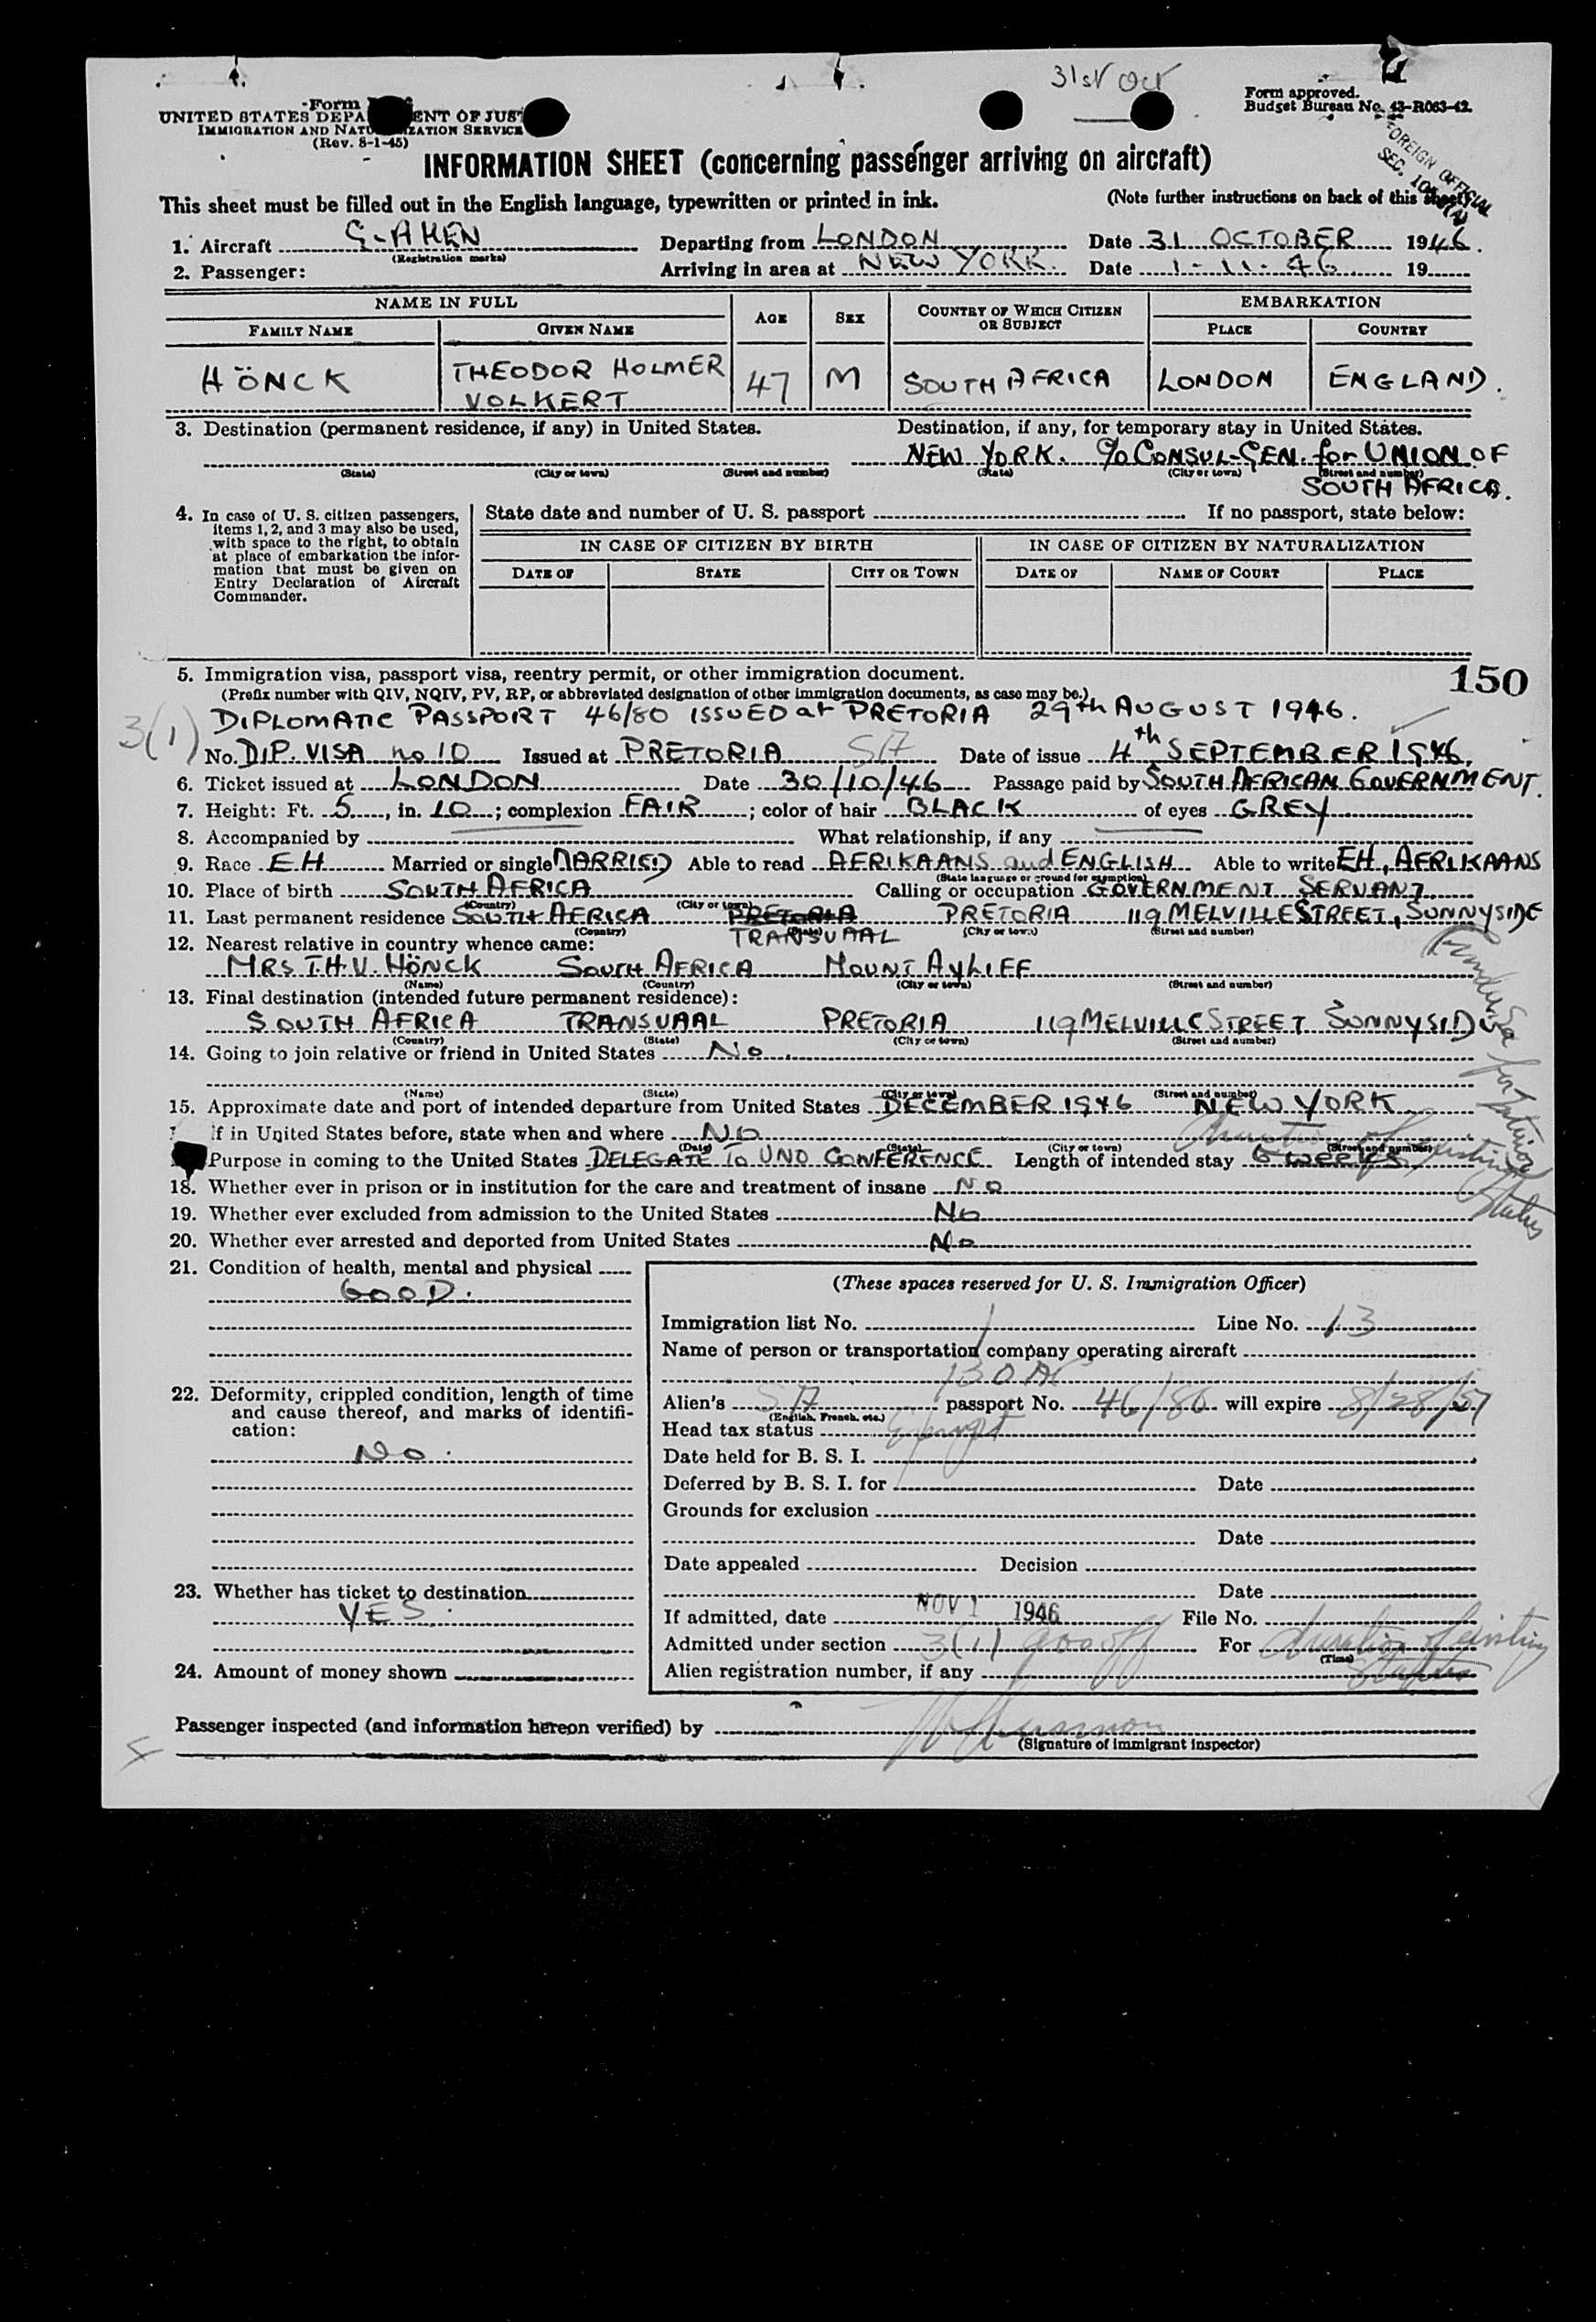 31st Oct
Form
UNITED STATES DEPA ENT OF JUST
IMMIGRATION AND NATU IZATION SERVICE
(Rev. 8-1-45)
Form approved.
Budget Bureau No. 43-R063-42.
FOREIGN OFFICIAL
SEC.
INFORMATION SHEET (concerning passenger arriving on aircraft)
This sheet must be filled out in the English language, typewritten or printed in ink. (Note further instructions on back of this sheet)
1. Aircraft G-AHEN Departing from LONDON Date 31 OCTOBER 1946.
(Registration marks)
2. Passenger: Arriving in area at NEW YORK. Date 1-11-46 19
NAME IN FULL AGE SEX COUNTRY OF WHICH CITIZEN OR SUBJECT EMBARKATION
FAMILY NAME GIVEN NAME PLACE COUNTRY
HÖNCK THEODOR HOLMER VOLKERT 47 M SOUTH AFRICA LONDON ENGLAND.
3. Destination (permanent residence, if any) in United States. Destination, if any, for temporary stay in United States.
NEW YORK. c/o CONSUL-GEN. for UNION OF
(State) (City or town) (Street and number) (State) (City or town) (Street and number)
SOUTH AFRICA.
4. In case of U. S. citizen passengers, items 1, 2, and 3 may also be used, with space to the right, to obtain at place of embarkation the information that must be given on Entry Declaration of Aircraft Commander.
State date and number of U. S. passport If no passport, state below:
IN CASE OF CITIZEN BY BIRTH IN CASE OF CITIZEN BY NATURALIZATION
DATE OF STATE CITY OR TOWN DATE OF NAME OF COURT PLACE
150
5. Immigration visa, passport visa, reentry permit, or other immigration document.
(Prefix number with QIV, NQIV, PV, RP, or abbreviated designation of other immigration documents, as case may be.)
3(1) DIPLOMATIC PASSPORT 46/80 ISSUED at PRETORIA 29th AUGUST 1946.
No. DIP. VISA no 10 Issued at PRETORIA SA Date of issue 4th SEPTEMBER 1946.
6. Ticket issued at LONDON Date 30/10/46 Passage paid by SOUTH AFRICAN GOVERNMENT.
7. Height: Ft. 5, in. 10; complexion FAIR; color of hair BLACK of eyes GREY
8. Accompanied by What relationship, if any
9. Race EH Married or single MARRIED Able to read AFRIKAANS and ENGLISH Able to write EH, AFRIKAANS
(State language or ground for exemption)
10. Place of birth SOUTH AFRICA Calling or occupation GOVERNMENT SERVANT
(Country) (City or town)
11. Last permanent residence SOUTH AFRICA PRETORIA PRETORIA 119 MELVILLE STREET, SUNNYSIDE
(Country) (State) (City or town) (Street and number)
TRANSVAAL
12. Nearest relative in country whence came:
MRS T.H.V. HÖNCK SOUTH AFRICA MOUNT AYLIFF
(Name) (Country) (City or town) (Street and number)
13. Final destination (intended future permanent residence):
SOUTH AFRICA TRANSVAAL PRETORIA 119 MELVILLE STREET SUNNYSIDE
(Country) (State) (City or town) (Street and number)
14. Going to join relative or friend in United States No.
(Name) (State) (City or town) (Street and number)
15. Approximate date and port of intended departure from United States DECEMBER 1946 NEW YORK
If in United States before, state when and where NO
(Date) (State) (City or town) (Street and number)
Purpose in coming to the United States DELEGATE TO UNO CONFERENCE Length of intended stay 6 WEEKS
duration of existing status
18. Whether ever in prison or in institution for the care and treatment of insane NO
19. Whether ever excluded from admission to the United States No
20. Whether ever arrested and deported from United States No
21. Condition of health, mental and physical
GOOD.
22. Deformity, crippled condition, length of time and cause thereof, and marks of identification:
No.
23. Whether has ticket to destination
YES.
24. Amount of money shown
(These spaces reserved for U. S. Immigration Officer)
Immigration list No. 1 Line No. 13
Name of person or transportation company operating aircraft
BOAC
Alien's SA passport No. 46/80 will expire 8/28/57
(English, French, etc.)
Head tax status Exempt
Date held for B. S. I.
Deferred by B. S. I. for Date
Grounds for exclusion
Date
Date appealed Decision
Date
If admitted, date NOV 1 1946 File No.
Admitted under section 3(1) Gov off For duration of existing status
(Time)
Alien registration number, if any
Passenger inspected (and information hereon verified) by
(Signature of immigrant inspector)